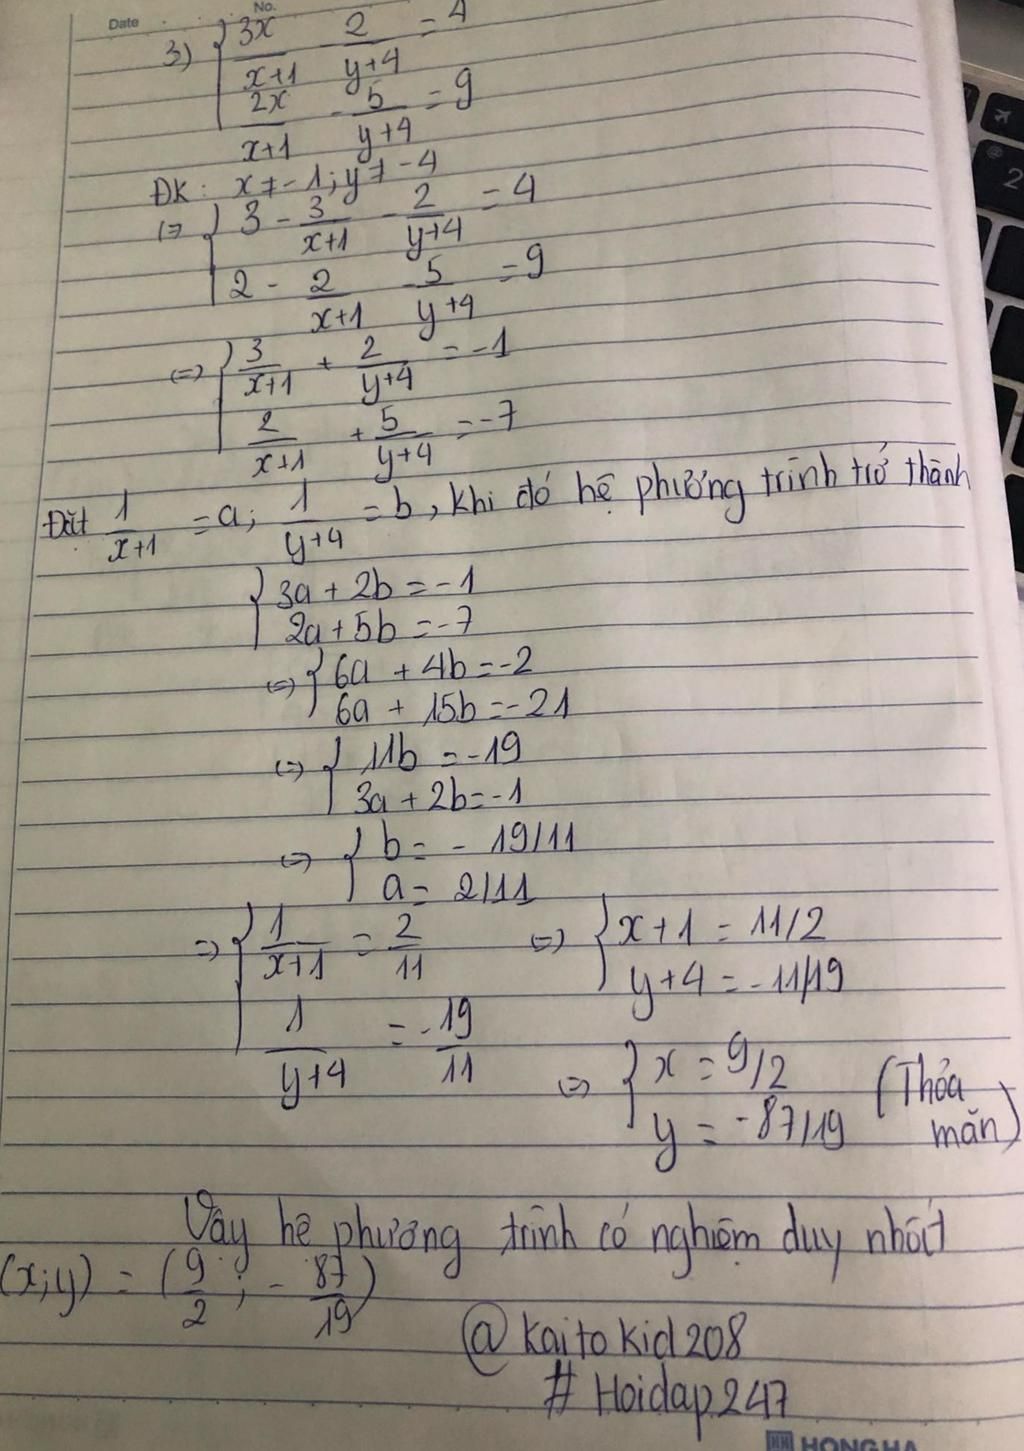 Date No.
3) { 3x/x+1 - 2/y+4 = 4
2x/x+1 - 5/y+4 = 9
ĐK: x ≠ -1; y ≠ -4
(=) { 3 - 3/x+1 - 2/y+4 = 4
2 - 2/x+1 - 5/y+4 = 9
(=) { 3/x+1 + 2/y+4 = -1
2/x+1 + 5/y+4 = -7
Đặt 1/x+1 = a; 1/y+4 = b, khi đó hệ phương trình trở thành
{ 3a + 2b = -1
2a + 5b = -7
(=) { 6a + 4b = -2
6a + 15b = -21
(=) { 11b = -19
3a + 2b = -1
(=) { b = - 19/11
a = 2/11
=) { 1/x+1 = 2/11 (=) { x+1 = 11/2
1/y+4 = -19/11 y+4 = -11/19
(=) { x = 9/2 (Thỏa
y = -87/19 mãn)
Vậy hệ phương trình có nghiệm duy nhất
(x;y) = (9/2; - 87/19)
@kaitokid208
# Hoidap247
HH HONG HA